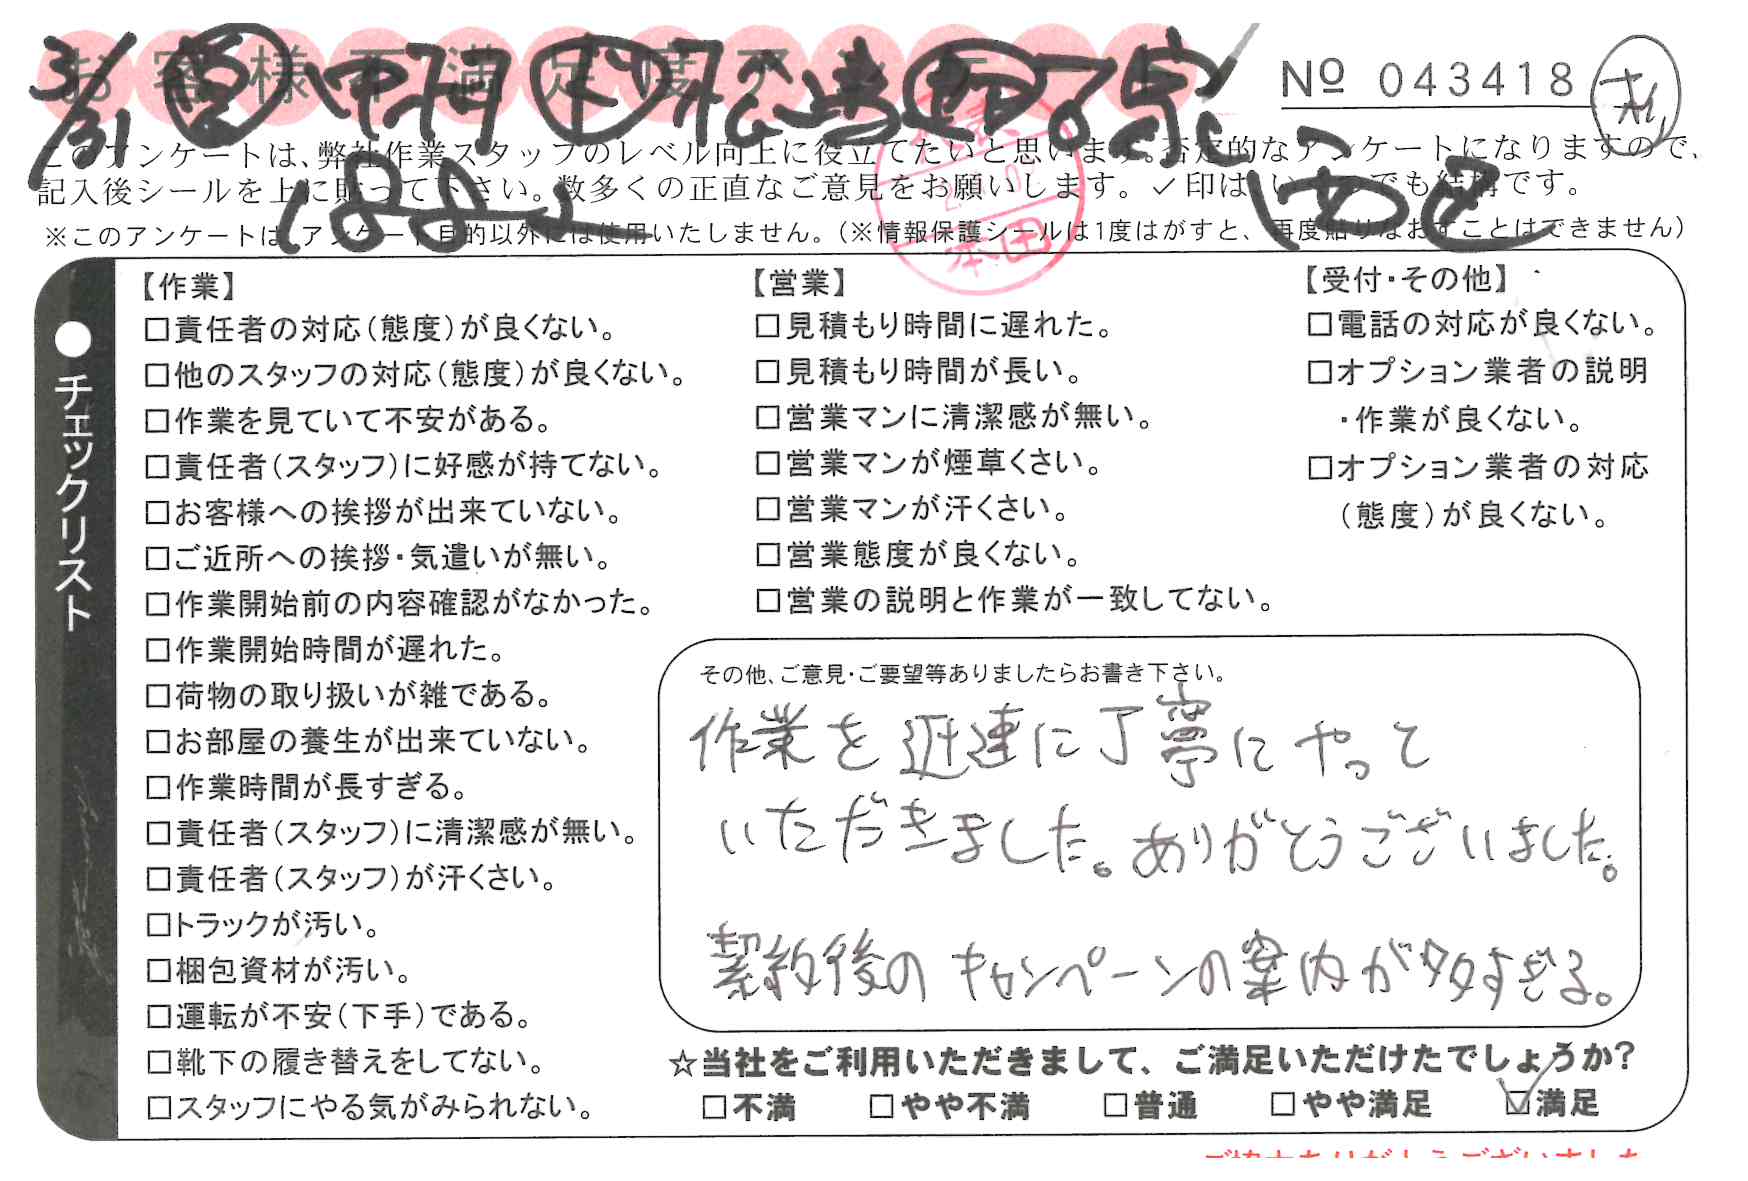 お客様不満足度アンケート
№ 043418
3/31
このアンケートは、弊社作業スタッフのレベル向上に役立てたいと思います。否定的なアンケートになりますので、
記入後シールを上に貼って下さい。数多くの正直なご意見をお願いします。✓印は、いくつでも結構です。
※このアンケートは、アンケート目的以外には使用いたしません。(※情報保護シールは1度はがすと、再度貼りなおすことはできません)
本田
●チェックリスト
【作業】
□責任者の対応(態度)が良くない。
□他のスタッフの対応(態度)が良くない。
□作業を見ていて不安がある。
□責任者(スタッフ)に好感が持てない。
□お客様への挨拶が出来ていない。
□ご近所への挨拶・気遣いが無い。
□作業開始前の内容確認がなかった。
□作業開始時間が遅れた。
□荷物の取り扱いが雑である。
□お部屋の養生が出来ていない。
□作業時間が長すぎる。
□責任者(スタッフ)に清潔感が無い。
□責任者(スタッフ)が汗くさい。
□トラックが汚い。
□梱包資材が汚い。
□運転が不安(下手)である。
□靴下の履き替えをしてない。
□スタッフにやる気がみられない。
【営業】
□見積もり時間に遅れた。
□見積もり時間が長い。
□営業マンに清潔感が無い。
□営業マンが煙草くさい。
□営業マンが汗くさい。
□営業態度が良くない。
□営業の説明と作業が一致してない。
【受付・その他】
□電話の対応が良くない。
□オプション業者の説明
・作業が良くない。
□オプション業者の対応
(態度)が良くない。
その他、ご意見・ご要望等ありましたらお書き下さい。
作業を迅速に丁寧にやって
いただきました。ありがとうございました。
契約後のキャンペーンの案内が多すぎる。
☆当社をご利用いただきまして、ご満足いただけたでしょうか?
□不満 □やや不満 □普通 □やや満足 ☑満足
ご協力ありがとうございました